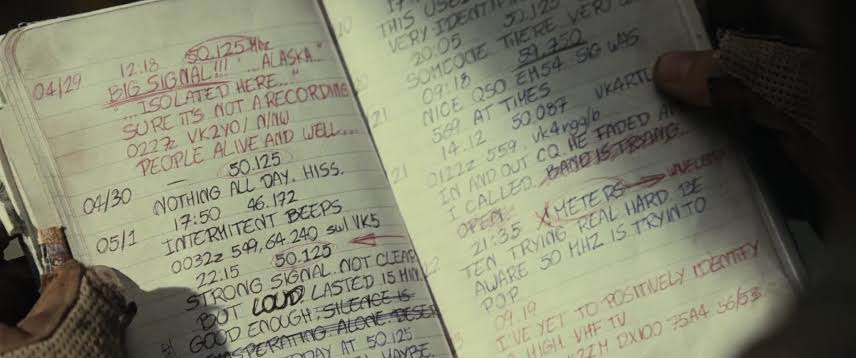 12.18 50.125 MHz
04/29 BIG SIGNAL!!! "...ALASKA..."
"...ISOLATED HERE..."
SURE IT'S NOT A RECORDING
0227z VK2YO/ N/NW
PEOPLE ALIVE AND WELL...
50.125
04/30 NOTHING ALL DAY. HISS.
17:50 46.172
05/1 INTERMITENT BEEPS
0032z 549, 64.240 swl VK5
22:15 50.125
STRONG SIGNAL. NOT CLEAR
BUT LOUD. LASTED 15 MIN.
GOOD ENOUGH. SILENCE IS
ALONE.
AT 50.125
MAYBE
THIS
VERY 50.125
20:05
SOMEONE THERE VERY
09:18 59.750
NICE QSO EM54. SIG WAS
569 AT TIMES
14.12 50.087 VKARTL
21 0122z 559, vk4rgg/b
IN AND OUT CQ HE FADED
I CALLED. BAND IS
OPEN
21:35 X METERS
TEN TRYING REAL HARD. BE
AWARE 50 MHZ IS TRYIN TO
POP
09.19
I'VE YET TO POSITIVELY IDENTIFY
HIGH VHF TV
DX100 75A4 56/53